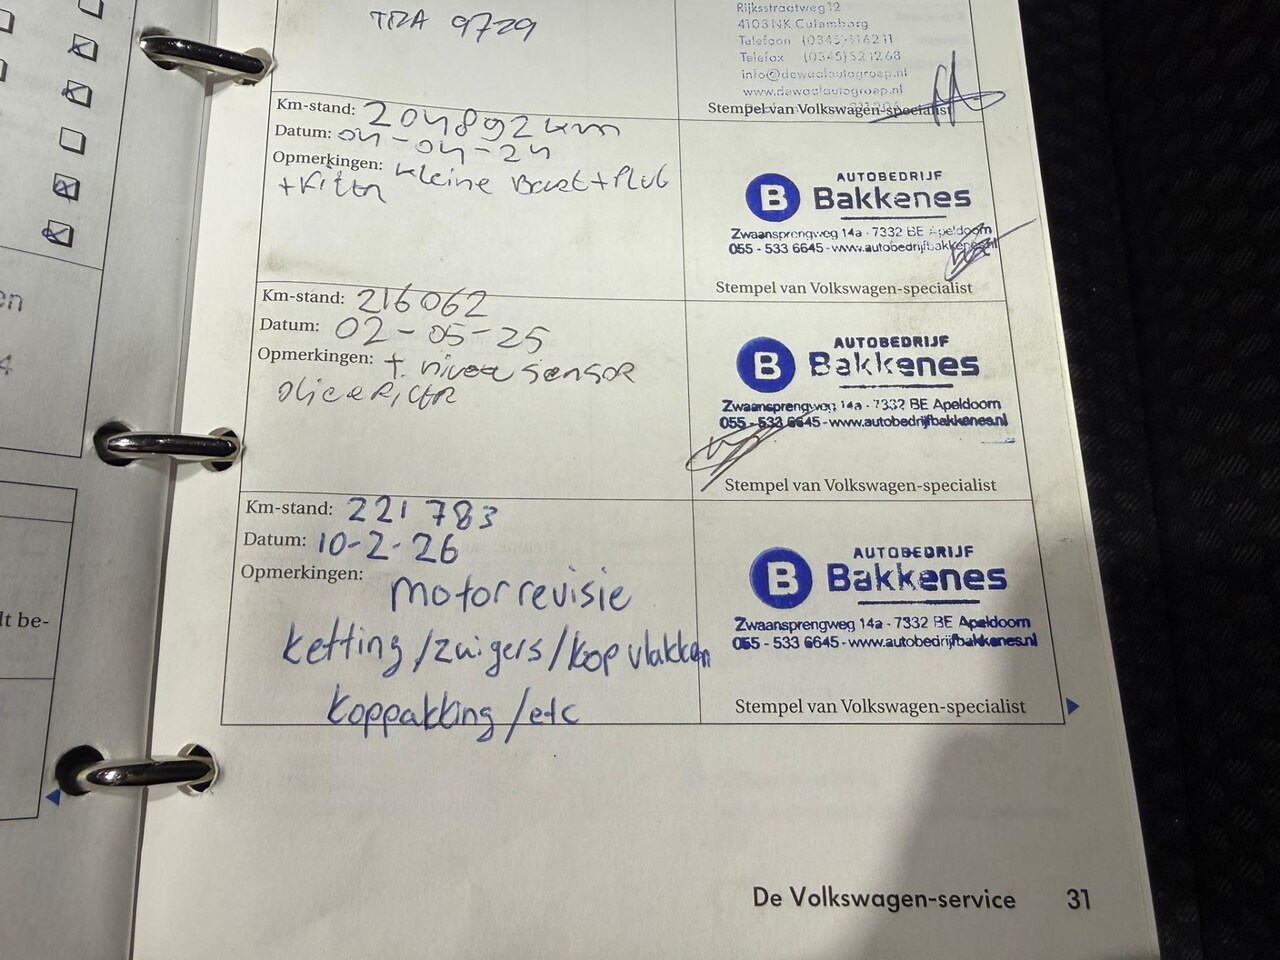 TRA 9729
Rijksstraatweg 12
4103 NK Culemborg
Telefoon (0345)-516211
Telefax (0345) 521268
info@dewaalautogroep.nl
www.dewaalautogroep.nl
Stempel van Volkswagen-specialist
Km-stand: 204892 km
Datum: 04-04-24
Opmerkingen: Kleine Beurt + Plug
+ Filter
AUTOBEDRIJF
B Bakkenes
Zwaansprengweg 14a - 7332 BE Apeldoorn
055 - 533 6645 - www.autobedrijfbakkenes.nl
Stempel van Volkswagen-specialist
Km-stand: 216062
Datum: 02-05-25
Opmerkingen: + niveau sensor
olie filter
AUTOBEDRIJF
B Bakkenes
Zwaansprengweg 14a - 7332 BE Apeldoorn
055 - 533 6645 - www.autobedrijfbakkenes.nl
Stempel van Volkswagen-specialist
Km-stand: 221783
Datum: 10-2-26
Opmerkingen:
motorrevisie
ketting/zuigers/kop vlakken
koppakking/etc
AUTOBEDRIJF
B Bakkenes
Zwaansprengweg 14a - 7332 BE Apeldoorn
055 - 533 6645 - www.autobedrijfbakkenes.nl
Stempel van Volkswagen-specialist
en
4
lt be-
De Volkswagen-service 31